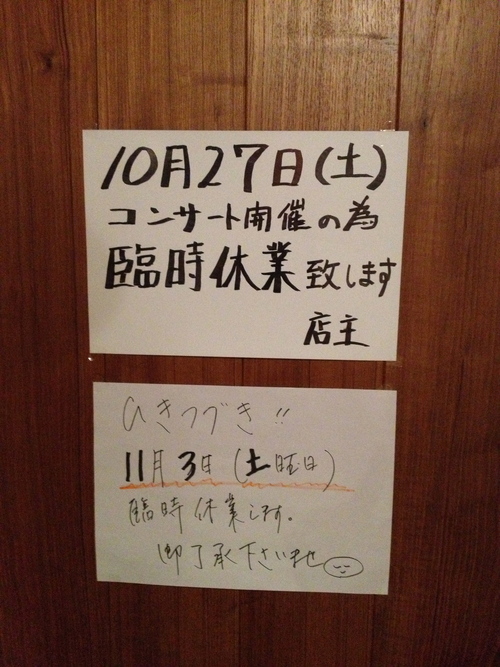 10月27日(土)
コンサート開催の為
臨時休業致します
店主
ひきつづき!!
11月3日(土曜日)
臨時休業します。
御了承下さいませ